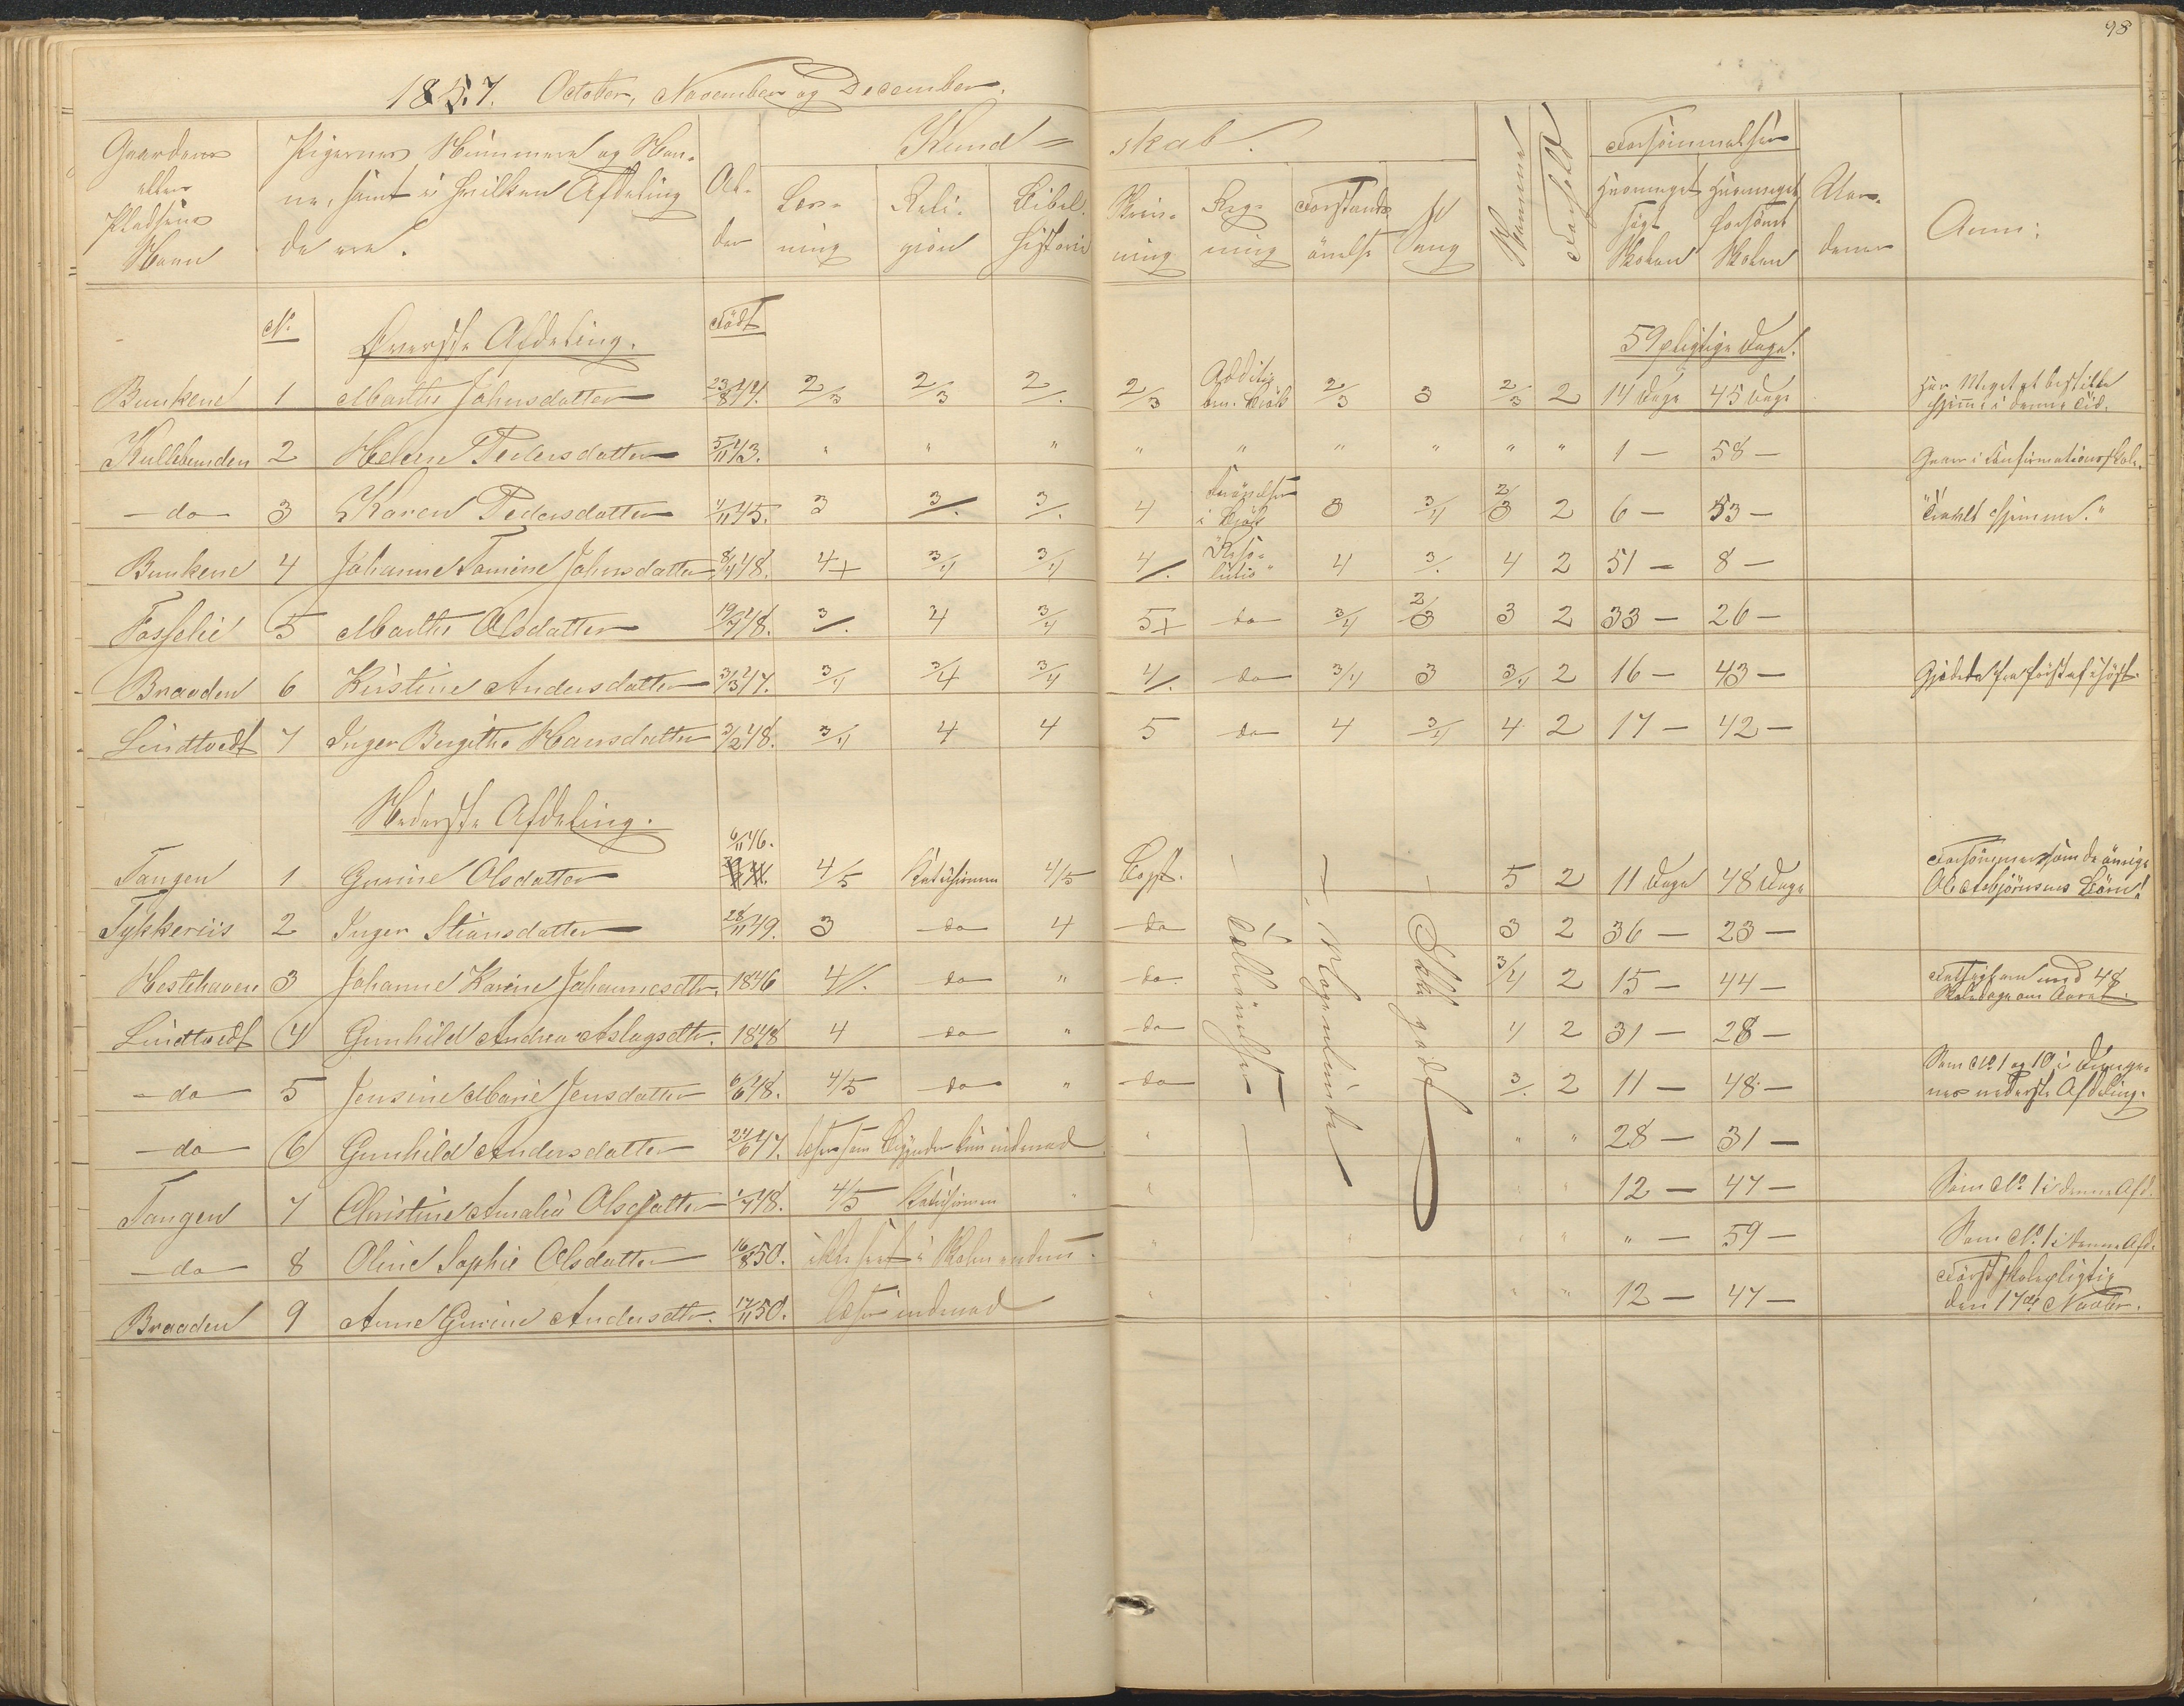 98
1857. October, November og December.
Gaardens eller Pladsens Navn
Pigernes Nummere og Navne, samt i hvilken Afdeling de ere.
Alder
Kundskab.
Læsning
Religion
Bibelhistorie
Skrivning
Regning
Forstandsövelse
Sang
Evne
Forhold
Forsømmelser
Hvormeget sögt Skolen
Hvormeget forsömt Skolen
Anm:
No
Øverste Afdeling.
Födt
59 pligtige Dage.
Bunkene 1 Marthe Johnsdatter 23/8 44. 2/3 2/3 2/. 2/3 2/3 3 2/3 2 14 Dage 45 Dage Har Meget at bestille hjemme i denne Tid.
Kullebunden 2 Helene Pedersdatter 5/11 43. " " " " " " " " " 1 — 58 — Gaaer i Confirmationsskole.
— do — 3 Karen Pedersdatter 1/11 45. 3 3/. 3/. 4 3 3/4 2/3 2 6 — 53 — hjemme."
Bunkene 4 Johanne Tomine Johnsdatter 8/4 48. 4+ 3/4 3/4 4/. 4 3/. 4 2 51 — 8 —
Fosselie 5 Marthe Olsdatter 19/7 48. 3/. 4 3/4 5+ do 3/4 2/3 3 2 33 — 26 —
Braaden 6 Kirstine Andersdatter 3/3 47. 3/4 3/4 3/4 4/. do 3/4 3 3/4 2 16 — 43 —
Lindtvedt 7 Inger Birgithe Hansdatter 3/2 48. 3/4 4 4 5 do 4 3/4 4 2 17 — 42 —
Nederste Afdeling.
6/11 46.
Tangen 1 Gurine Olsdatter 4/5 Katechismen 4/5 5 2 11 Dage 48 Dage Forsömmer som de övrige Ol Asbjörnsens Börn!
Tykkeriis 2 Inger Stiansdatter 28/11 49. 3 do 4 do 3 2 36 — 23 —
Hestehaven 3 Johanne Karine Johannesdtr. 1846 4/. do " do 3/4 2 15 — 44 — 48 Skoledage om Aaret.
Lindtvedt 4 Gunhild Andrea Aslagsdtr. 1848 4 do " do 4 2 31 — 28 —
— do — 5 Jensine Marie Jensdatter 6/6 48. 4/5 do " do 3/. 2 11 — 48 — Som No 1 og 10 i Drengenes nederste Afdeling.
— do — 6 Gunhild Andersdatter 24/6 47. " " " 28 — 31 —
Tangen 7 Christine Amalia Olsdatter 1/7 48. 4/5 Katechismen " " " " 12 — 47 — Som No. 1 i denne Afd.
— do — 8 Oline Sophie Olsdatter 16/8 50. ikke seet i Skolen endnu. " " " " " — 59 — Som No. 1 i denne Afd.
Braaden 9 Anne Gurine Andersdtr. 17/11 50. læser indenad " " " 12 — 47 — Först skolepligtig den 17de Novbr.
Tallövelser
Mogenlunde
Ikke godt